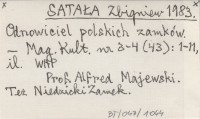 SATAŁA Zbigniew 1983.
Odnowiciel polskich zamków.
– Mag. Kult. nr 3-4 (43): 1-11,
il. WAP
Prof. Alfred Majewski.
Też Niedzicki Zamek.
BJ/097/1064